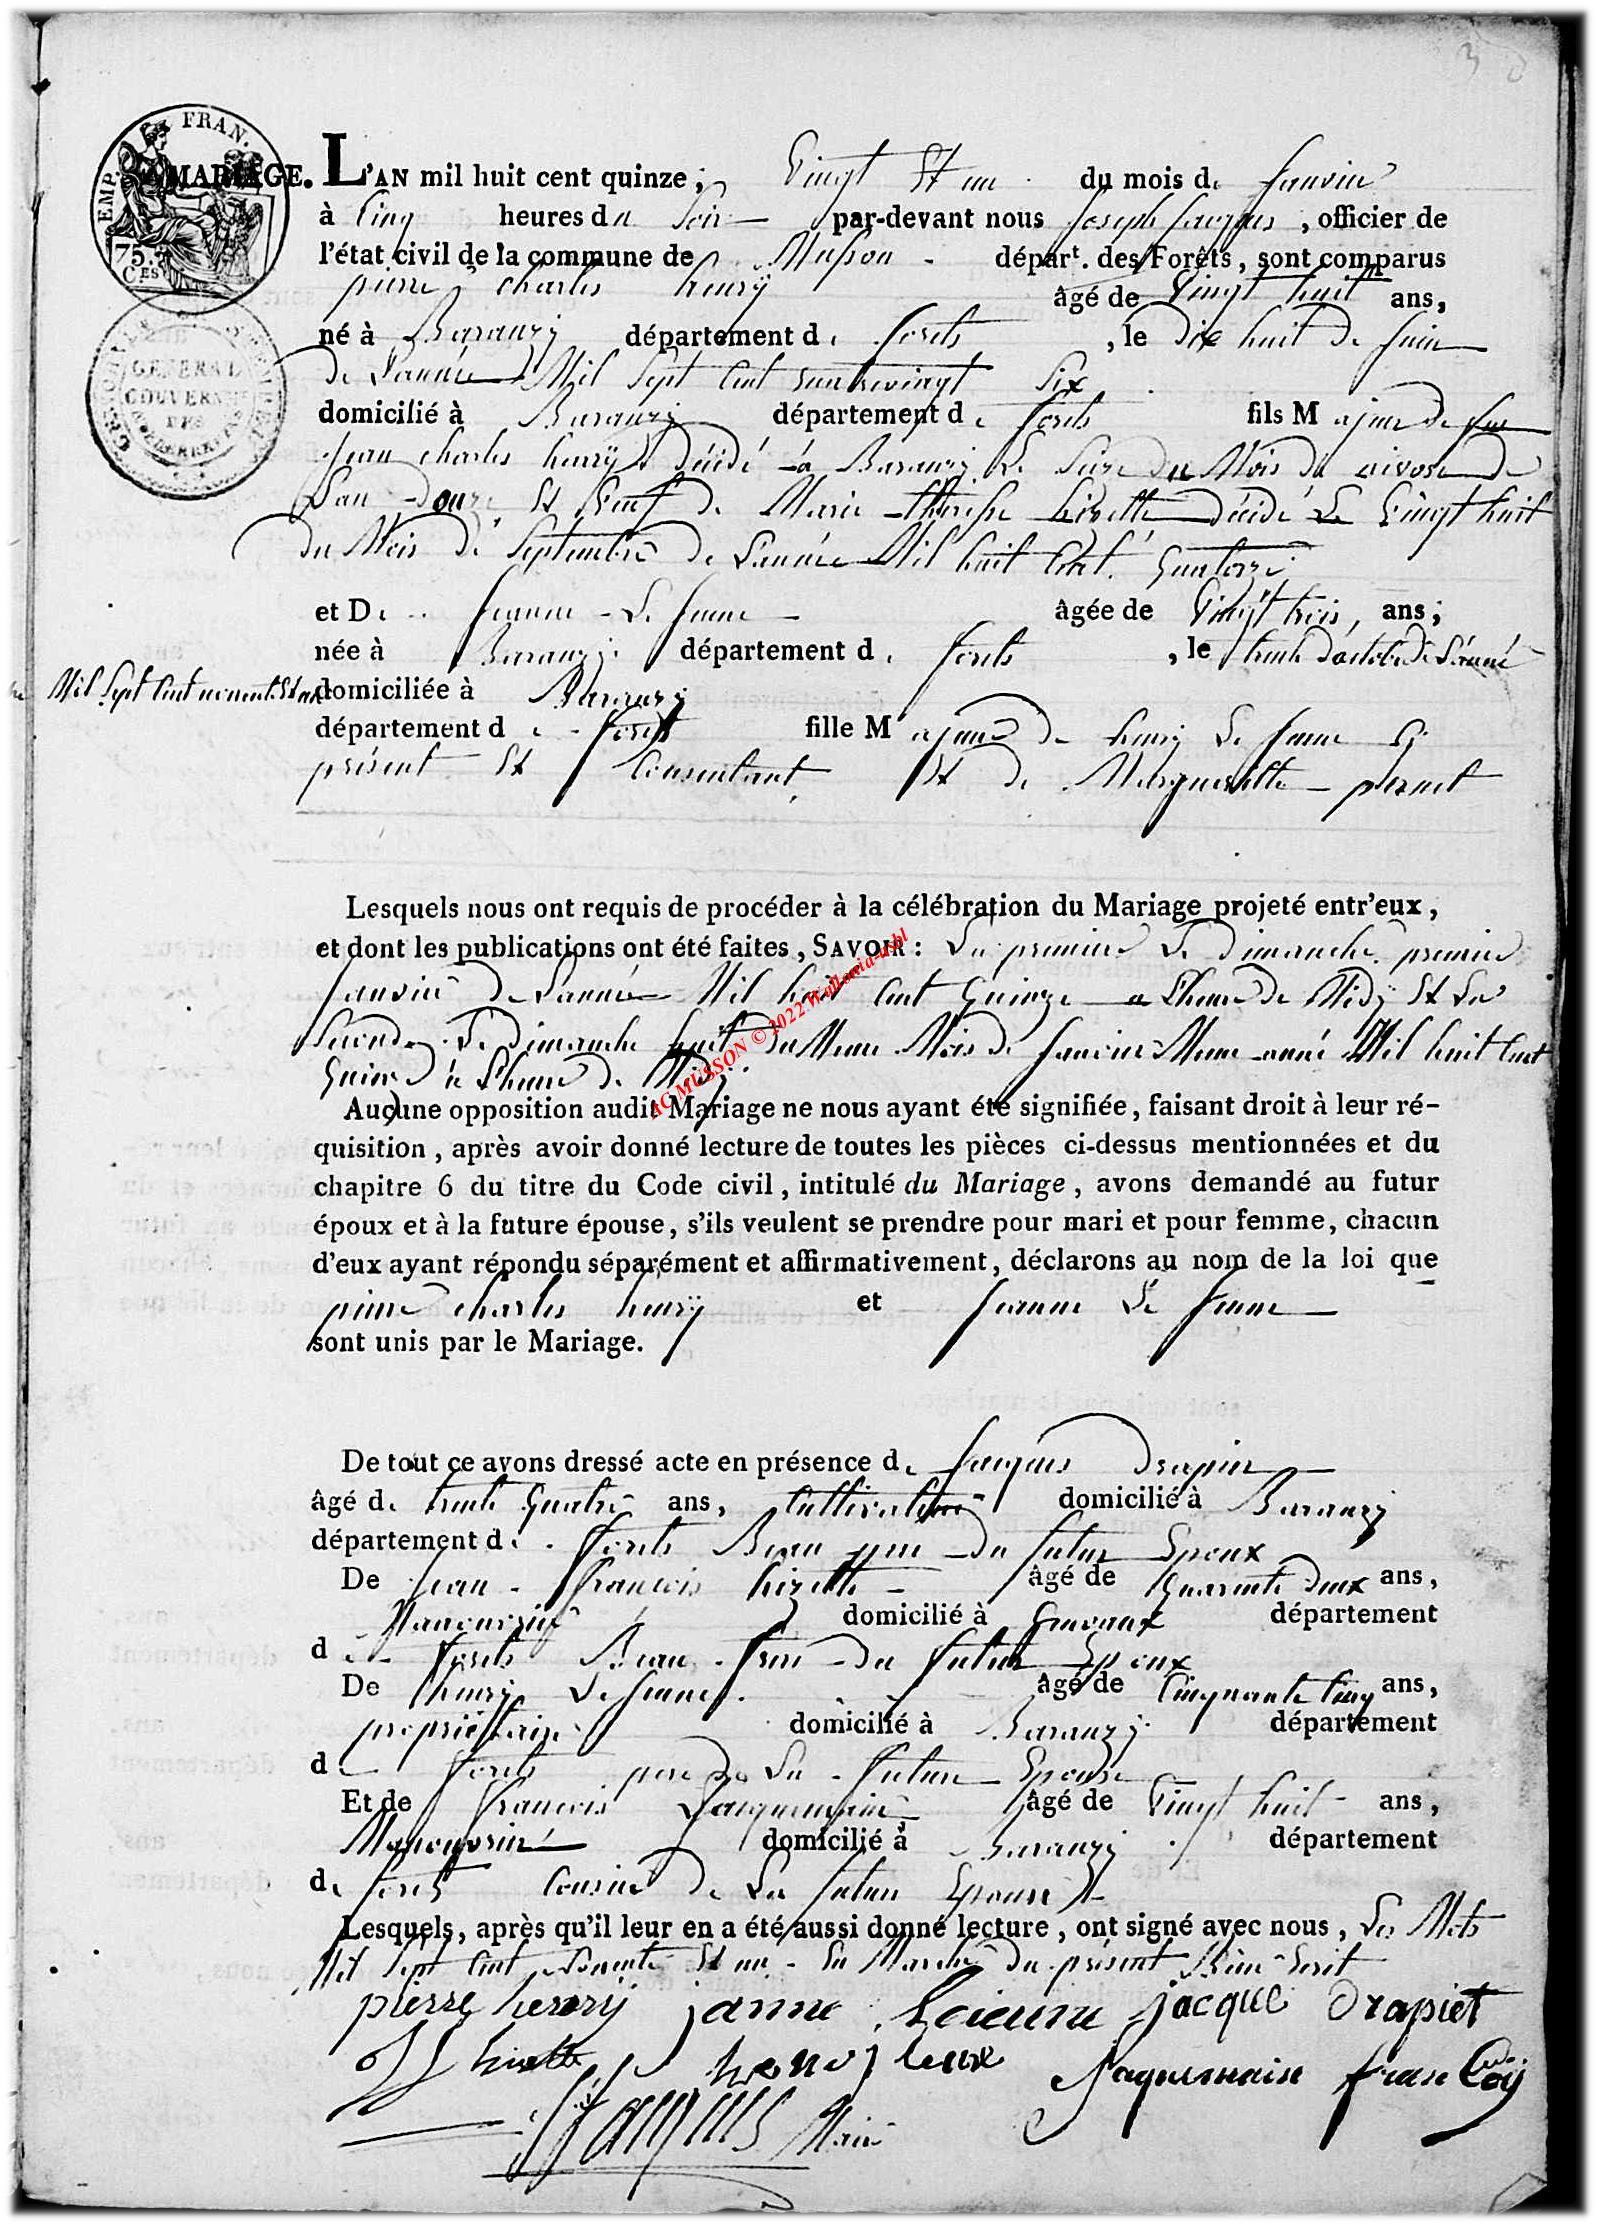 EMP. FRAN.
75.
C.ES
GÉNÉRAL
GOUVERNEM
MARIAGE. L'AN mil huit cent quinze, Vingt Et un du mois de Janvier
à Cinq heures du Soir par-devant nous Joseph Jacques, officier de
l'état civil de la commune de Musson départ. des Forêts, sont comparus
pierre charles henrÿ âgé de Vingt huit ans,
né à Baranzy département de forets, le dix huit de Juin
de L'année Mil Sept Cent quatrevingt Six
domicilié à Baranzy département de forets fils Majeur de feu
Jean charles henrÿ décidé à Baranzy Le Seize du Mois de nivose de
L'an douze Et Veuf de Marie theresse hizette décidé Le Vingt huit
du Mois de Septembre de L'année Mil huit Cent Quatorze
et De Jeanne Le Jeune âgée de Vingt trois, ans;
née à Baranzy département de forets, le trente d'octobre de L'année
Mil Sept Cent nonente Et un domiciliée à Baranzy
département de forets fille Majeure de henry Le Jeune Cy
présent Et Consentant, Et de Margueritte pernet
Lesquels nous ont requis de procéder à la célébration du Mariage projeté entr'eux,
et dont les publications ont été faites, SAVOIR: La premiere Le Dimanche premier
Janvier de L'année Mil huit Cent Quinze a L'heure de Midÿ Et La
Seconde Le Dimanche huit du Meme Mois de Janvier Meme année Mil huit Cent
Quinze a L'heure de Midÿ.
Aucune opposition audit Mariage ne nous ayant été signifiée, faisant droit à leur ré-
quisition, après avoir donné lecture de toutes les pièces ci-dessus mentionnées et du
chapitre 6 du titre du Code civil, intitulé du Mariage, avons demandé au futur
époux et à la future épouse, s'ils veulent se prendre pour mari et pour femme, chacun
d'eux ayant répondu séparément et affirmativement, déclarons au nom de la loi que
pierre charles henrÿ et Jeanne Le Jeune
sont unis par le Mariage.
De tout ce avons dressé acte en présence de Jacques Drapier
âgé de trente Quatre ans, Cultivateur domicilié à Baranzy
département de forets Beau pere du futur Epoux
De Jean francois hizette âgé de Quarente deux ans,
Manouvrier domicilié à Gruvaux département
de forets Beau frere du futur Epoux
De henry Le Jeune âgé de Cinquante Cinq ans,
propriétaire domicilié à Baranzy département
de forets pere de La future Epouse
Et de francois Jacquemain âgé de Vingt huit ans,
Manouvrier domicilié à Baranzy département
de forets Cousin de La future Epouse Et
Lesquels, après qu'il leur en a été aussi donné lecture, ont signé avec nous, Les Mots
Mil Sept Cent nonente Et un En Marche du présent Bien Ecrit
pierre henrij janne Leieune jacque Drapiet
J f hizette henrÿ leune Jaquemain francoij
Jacques Maire
AG MUSSON © 2022 Wallonia-asbl